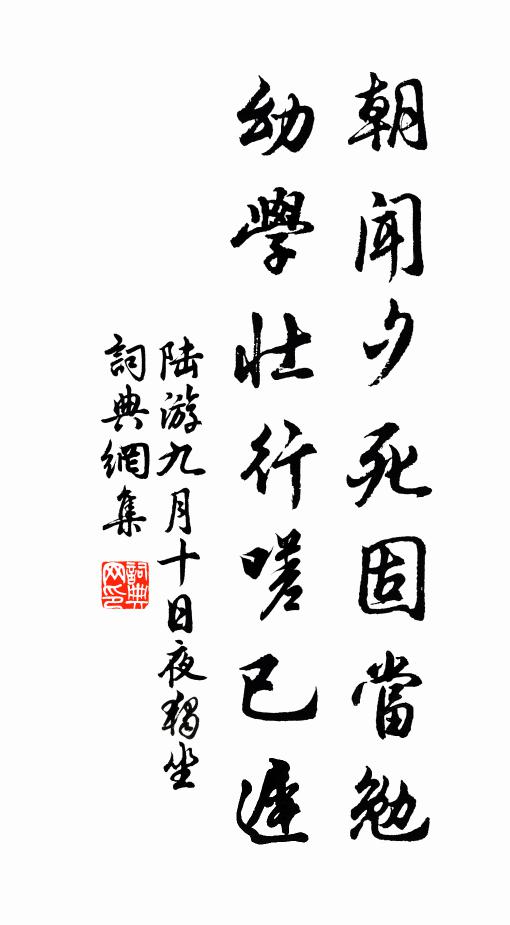 朝聞夕死固當勉
幼學壯行嗟已遲
陸游九月十日夜獨坐
詞典網集
詞典网印